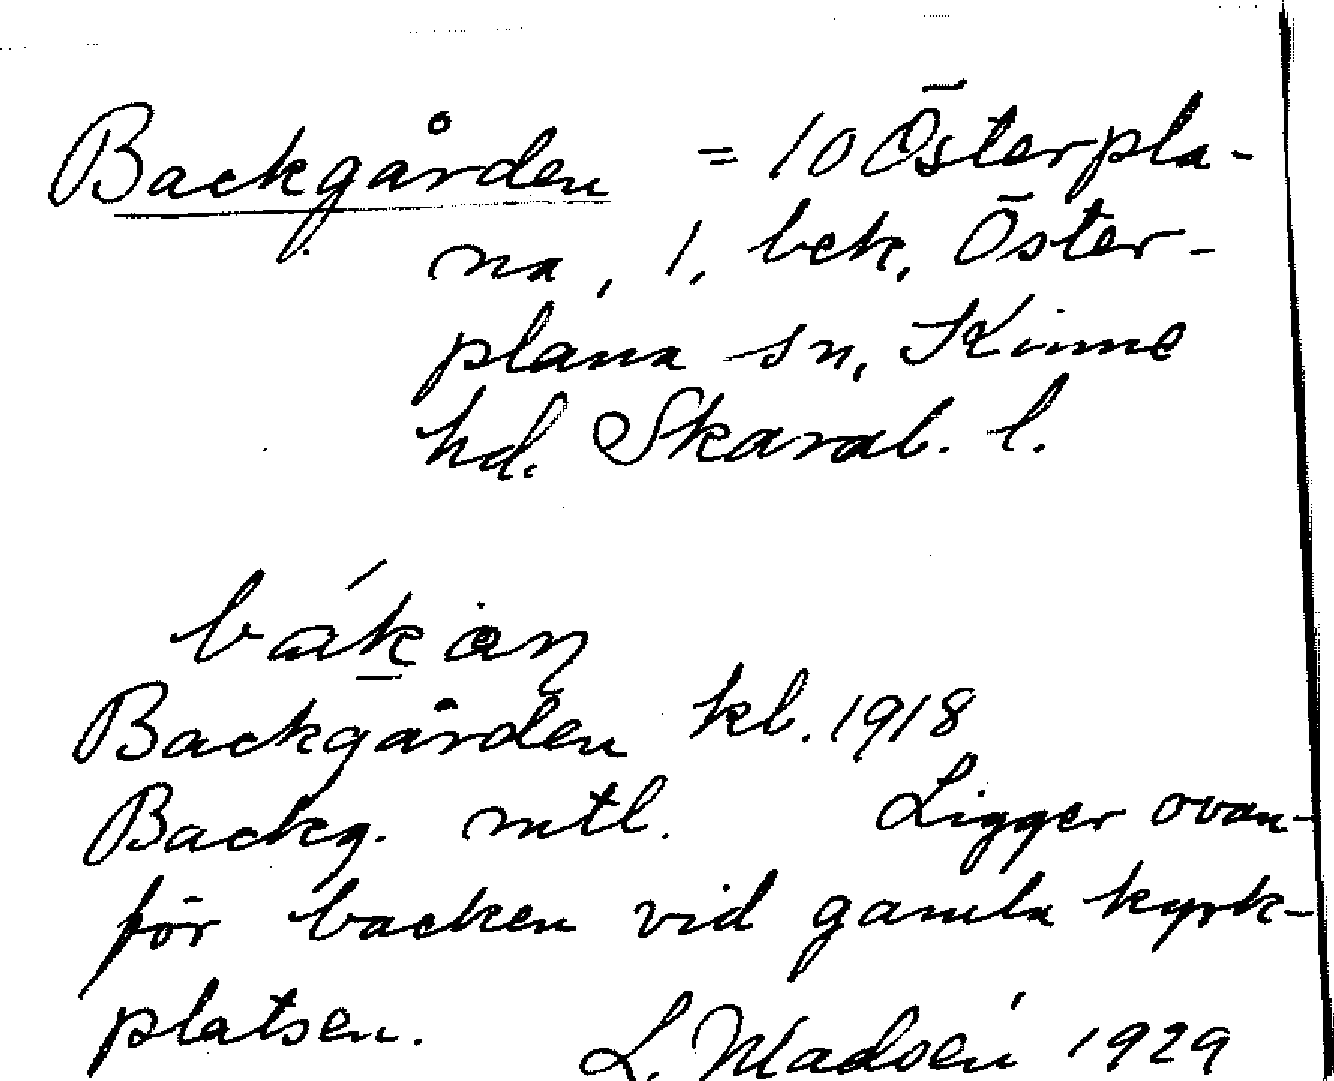 Backgården = 10 Österpla-
na, 1, bek, Öster-
plana sn, Kinne
hd. Skarab. l.
Backgården kb. 1918
Backg. mtl. Ligger ovan-
för backen vid gamla kyrk-
platsen.
L. Madsén 1929